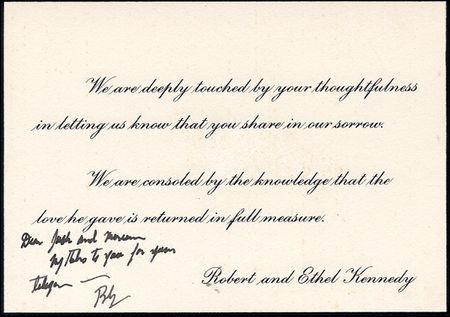 We are deeply touched by your thoughtfulness
in letting us know that you share in our sorrow.
We are consoled by the knowledge that the
love he gave is returned in full measure.
Dear Jack and
my thks to you for your
telegram —
Robert and Ethel Kennedy